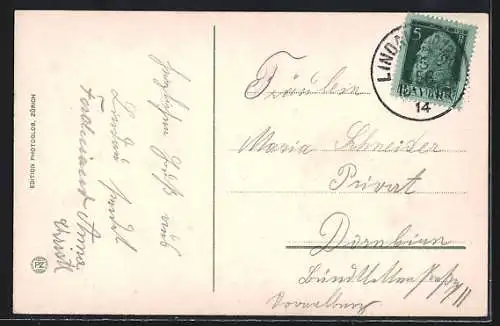 EDITION PHOTOGLOB, ZÜRICH
PZ
herzlichen Gruß aus
Lindau sendet
Ferdinand Anna
Christl
LINDAU
BAYERN
14
5
Fräulein
Maria Schneider
Privat
Dornbirn
Vorarlberg